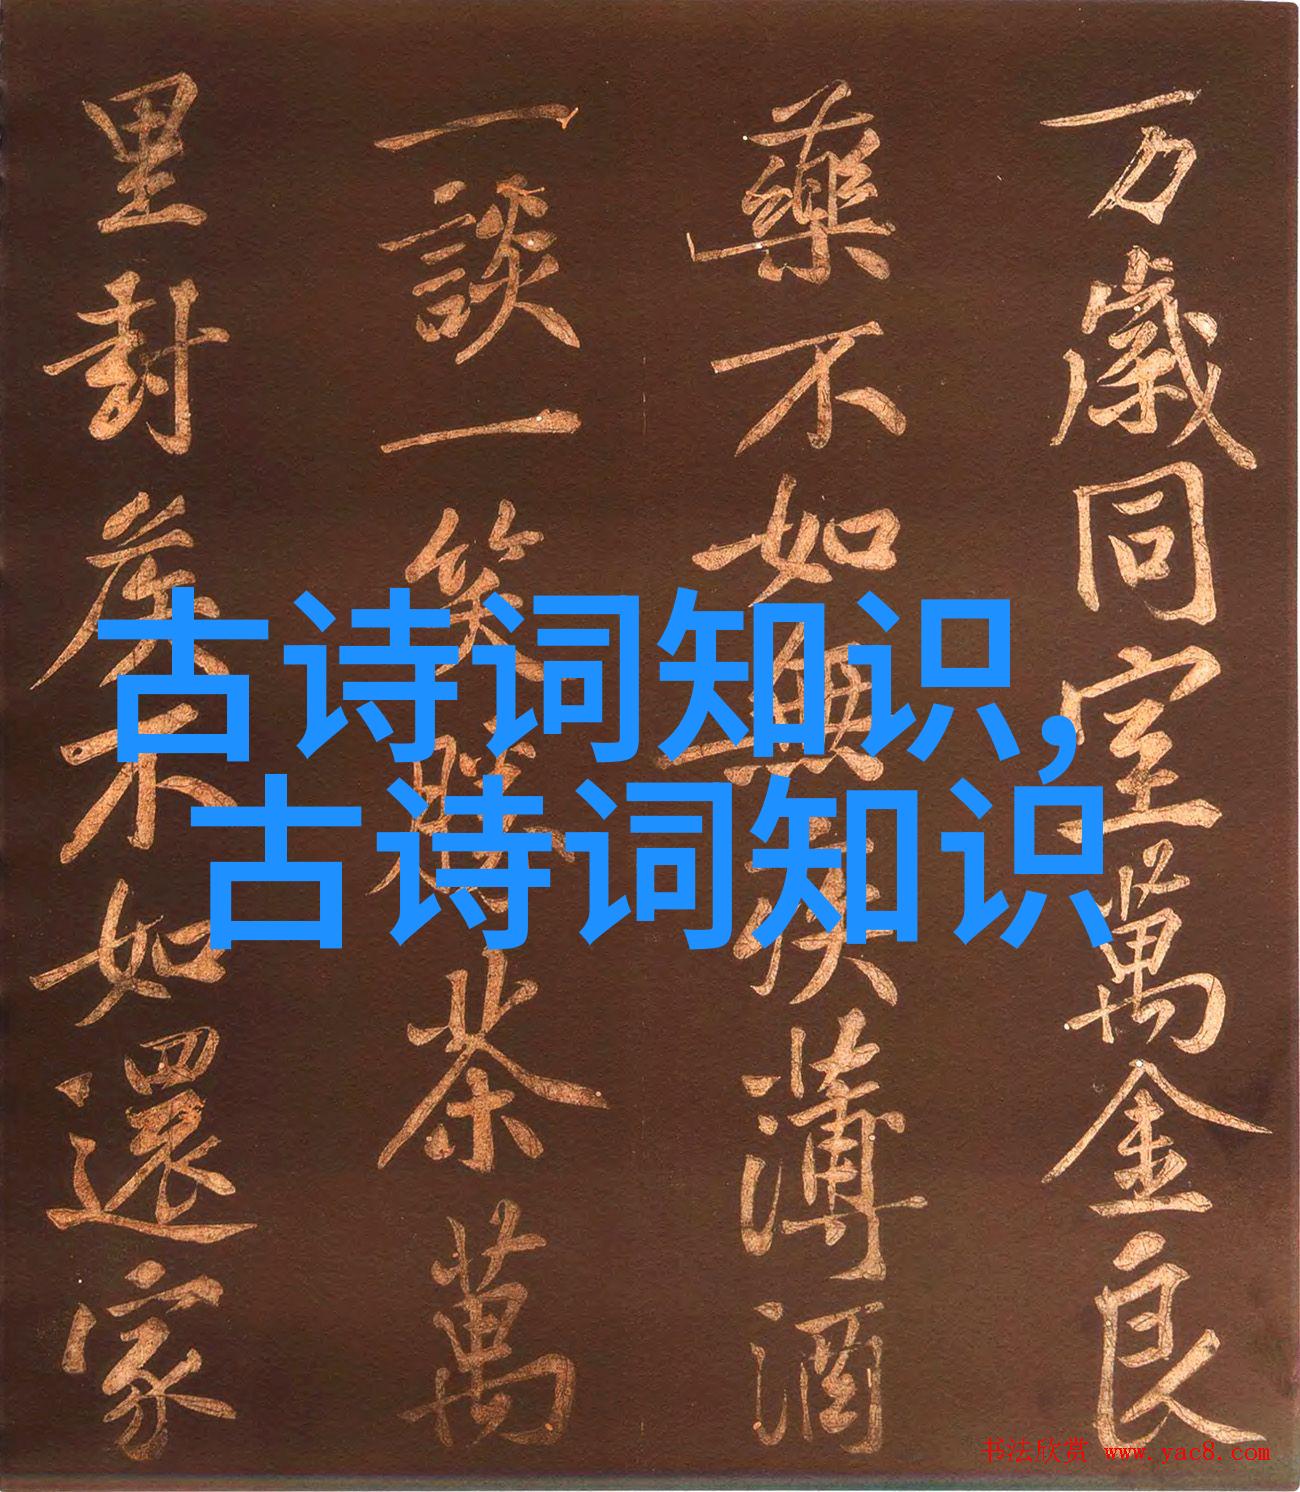 万歲同室萬金良
藥不如無疾薄酒
一談一笑勝茶萬
里封侯不如還家
古诗词知识,
古诗词知识
书法欣赏 www.yac8.com